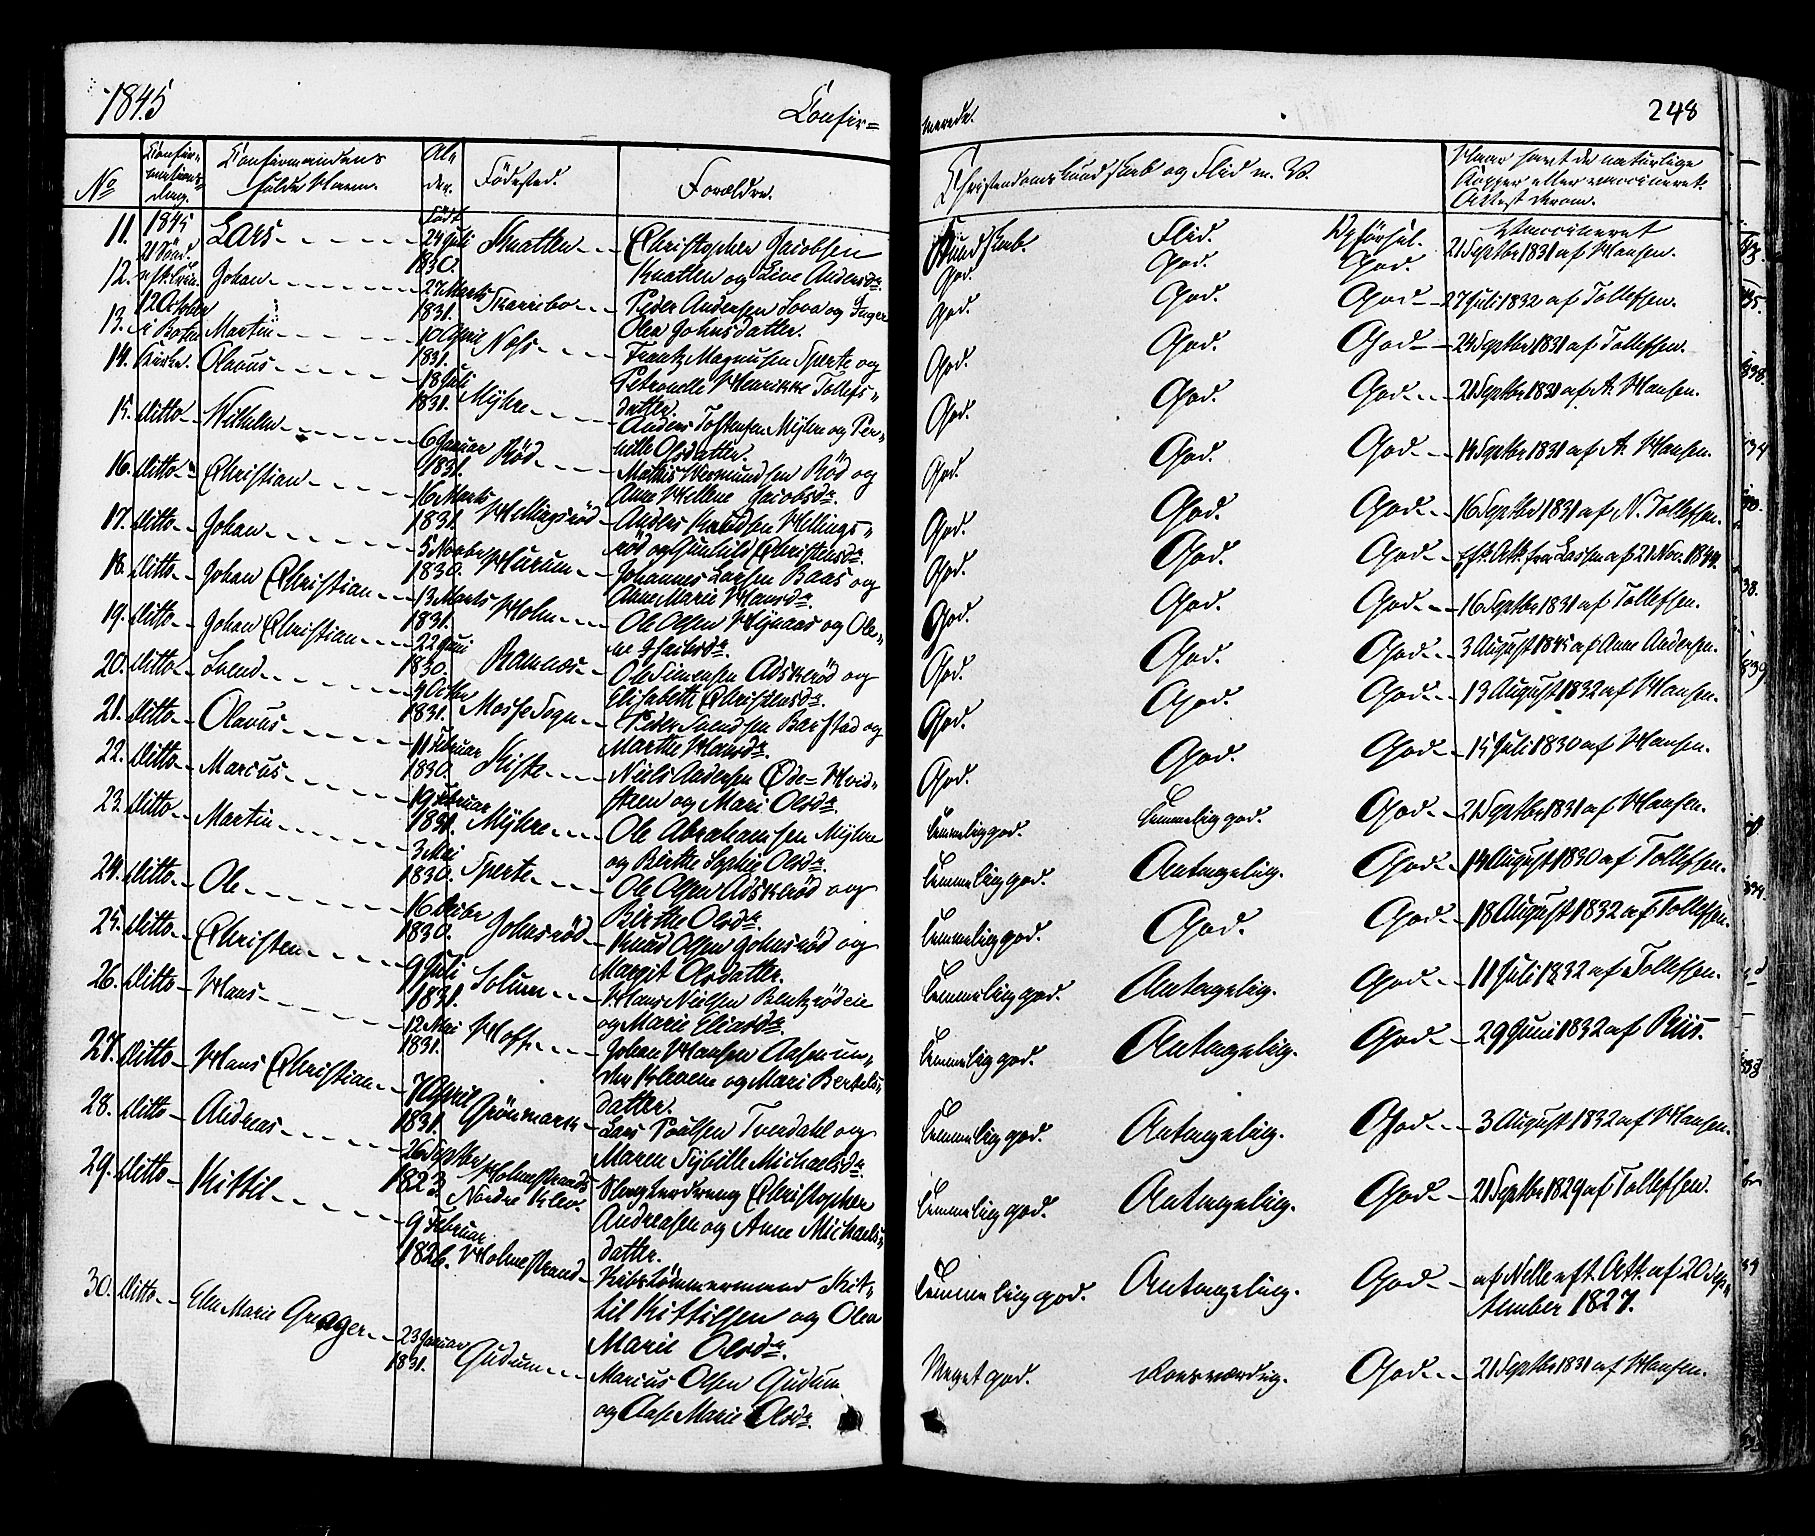 1845
Confir=
merede.
248
No
Confir-
mations-
dag.
Confirmandens
fulde Navn.
Al-
der.
Födested.
Forældre.
Christendomskundskab og Flid m. V.
Naar havt de naturlige
Kopper eller vaccineret.
Attest derom.
11. 1845 Lars Født 24 Juli 1830. Knatten Christopher Jacobsen
Knatten og Live Andersda.
Kundskab. God. Flid. God. Opförsel. God. Vaccineret 21 Septbr 1831 af Hansen.
12. 12 October Johan 27 Marts 1831. Skarribo Peder Andersen Sova og Inger
Olea Johnsdatter.
God. God. God 27 Juli 1832 af Tollefsen.
13. i Botne Martin 10 April 1831. Næss Frantz Magnusen Sperte og
Petronelle Henrikke Tollefs=
datter.
God. God. God 24 Septbr 1831 af Tollefsen.
14. Kirke. Olavus 18 Juli 1831. Myhre Anders Tostensen Myhre og Per-
nille Olsdatter.
God. God. God 21 Septbr 1831 af A. Hansen.
15. ditto Wilhelm 6 Januar 1831. Röd Mathis Wermundsen Röd og
Anne Hellene Jacobsda.
God. God. God 14 Septbr 1831 af A. Hansen.
16. ditto Christian 16 Marts 1831. Hellingsröd Anders Knudsen Hellings-
röd og Gunhild Christensda.
God. God. God 16 Septbr 1831 af N. Tollefsen.
17. ditto Johan 5 Novbr 1830. Harum Johannes Larsen Baas og
Anne Marie Hansda.
God. God. God eft. Att. fra Lassen af 21 Nov. 1844.
18. ditto Johan Christian 13 Marts 1831. Holm Ole Olsen og Ole-
ne
God. God. God 16 Septbr 1831 af Tollefsen.
19. ditto Johan Christian 22 Juni 1830. Ramnæs Ole Simensen Adskeröd og
Elisabeth Christensda.
God. God. God 3 August 1845 af Anne Andersen.
20. ditto Svend 4 Octbr 1831. Mosse Sogn Peder Svendsen Barstad og
Marthe Hansda.
God. God. God 13 August 1832 af Hansen.
21. ditto Olavus 11 Februar 1830. Kiste Niels Andersen Øde= Hvid-
steen og Mari Olsda.
God. God. God 15 Juli 1830 af Hansen.
22. ditto Marcus 19 Februar 1831. Myhre Ole Abrahamsen Myhre
og Birthe Sophie Olsda.
Temmelig god. Temmelig god. God 21 Septbr 1831 af Hansen.
23. ditto Martin 3 Mai 1830. Sperte Ole Olsen Adskeröd og
Birthe Olsda.
Temmelig god. Antagelig. God 14 August 1830 af Tollefsen.
24. ditto Ole 16 Decbr 1830. Johnsröd Knud Olsen Johnsröd og
Margit Olsdatter.
Temmelig god. God. God 18 August 1832 af Tollefsen.
25. ditto Christen 9 Juli 1831. Solum Hans Nielsen Bentsrödeie
og Marie Eliasda.
Temmelig god. Antagelig. God 11 Juli 1832 af Tollefsen.
26. ditto Hans 12 Mai 1831. Hoff Johan Hansen Aasmun-
den Kleven og Mari Bertels-
datter.
Temmelig god. Antagelig. God 29 Juni 1832 af Riis.
27. ditto Hans Christian 7 April 1831. Grönmark Lars Poulsen Tverdahl og
Maren Sybille Michaelsda.
Temmelig god. Antagelig. God 3 August 1832 af Hansen.
28. ditto Andreas 26 Septbr 1823. Holmestrands Nordre Klev. Christopher
Andreasen og Anne Michaels-
datter.
Temmelig god. Antagelig. God 21 Septbr 1829 af Tollefsen.
29. ditto Kittil 9 Februar 1826. Holmestrand Skibstömmermand Kit-
til Kittilsen og Olea
Marie Olsda.
Temmelig god. Antagelig. God af Nelle eft. Att. af 20 Sep-
tember 1827.
30. ditto Elen Marie Grager 23 Januar 1831. Gudum Marcus Olsen Gudum
og Aase Marie Olsda.
Meget god. Roesværdig. God 21 Septbr 1831 af Hansen.